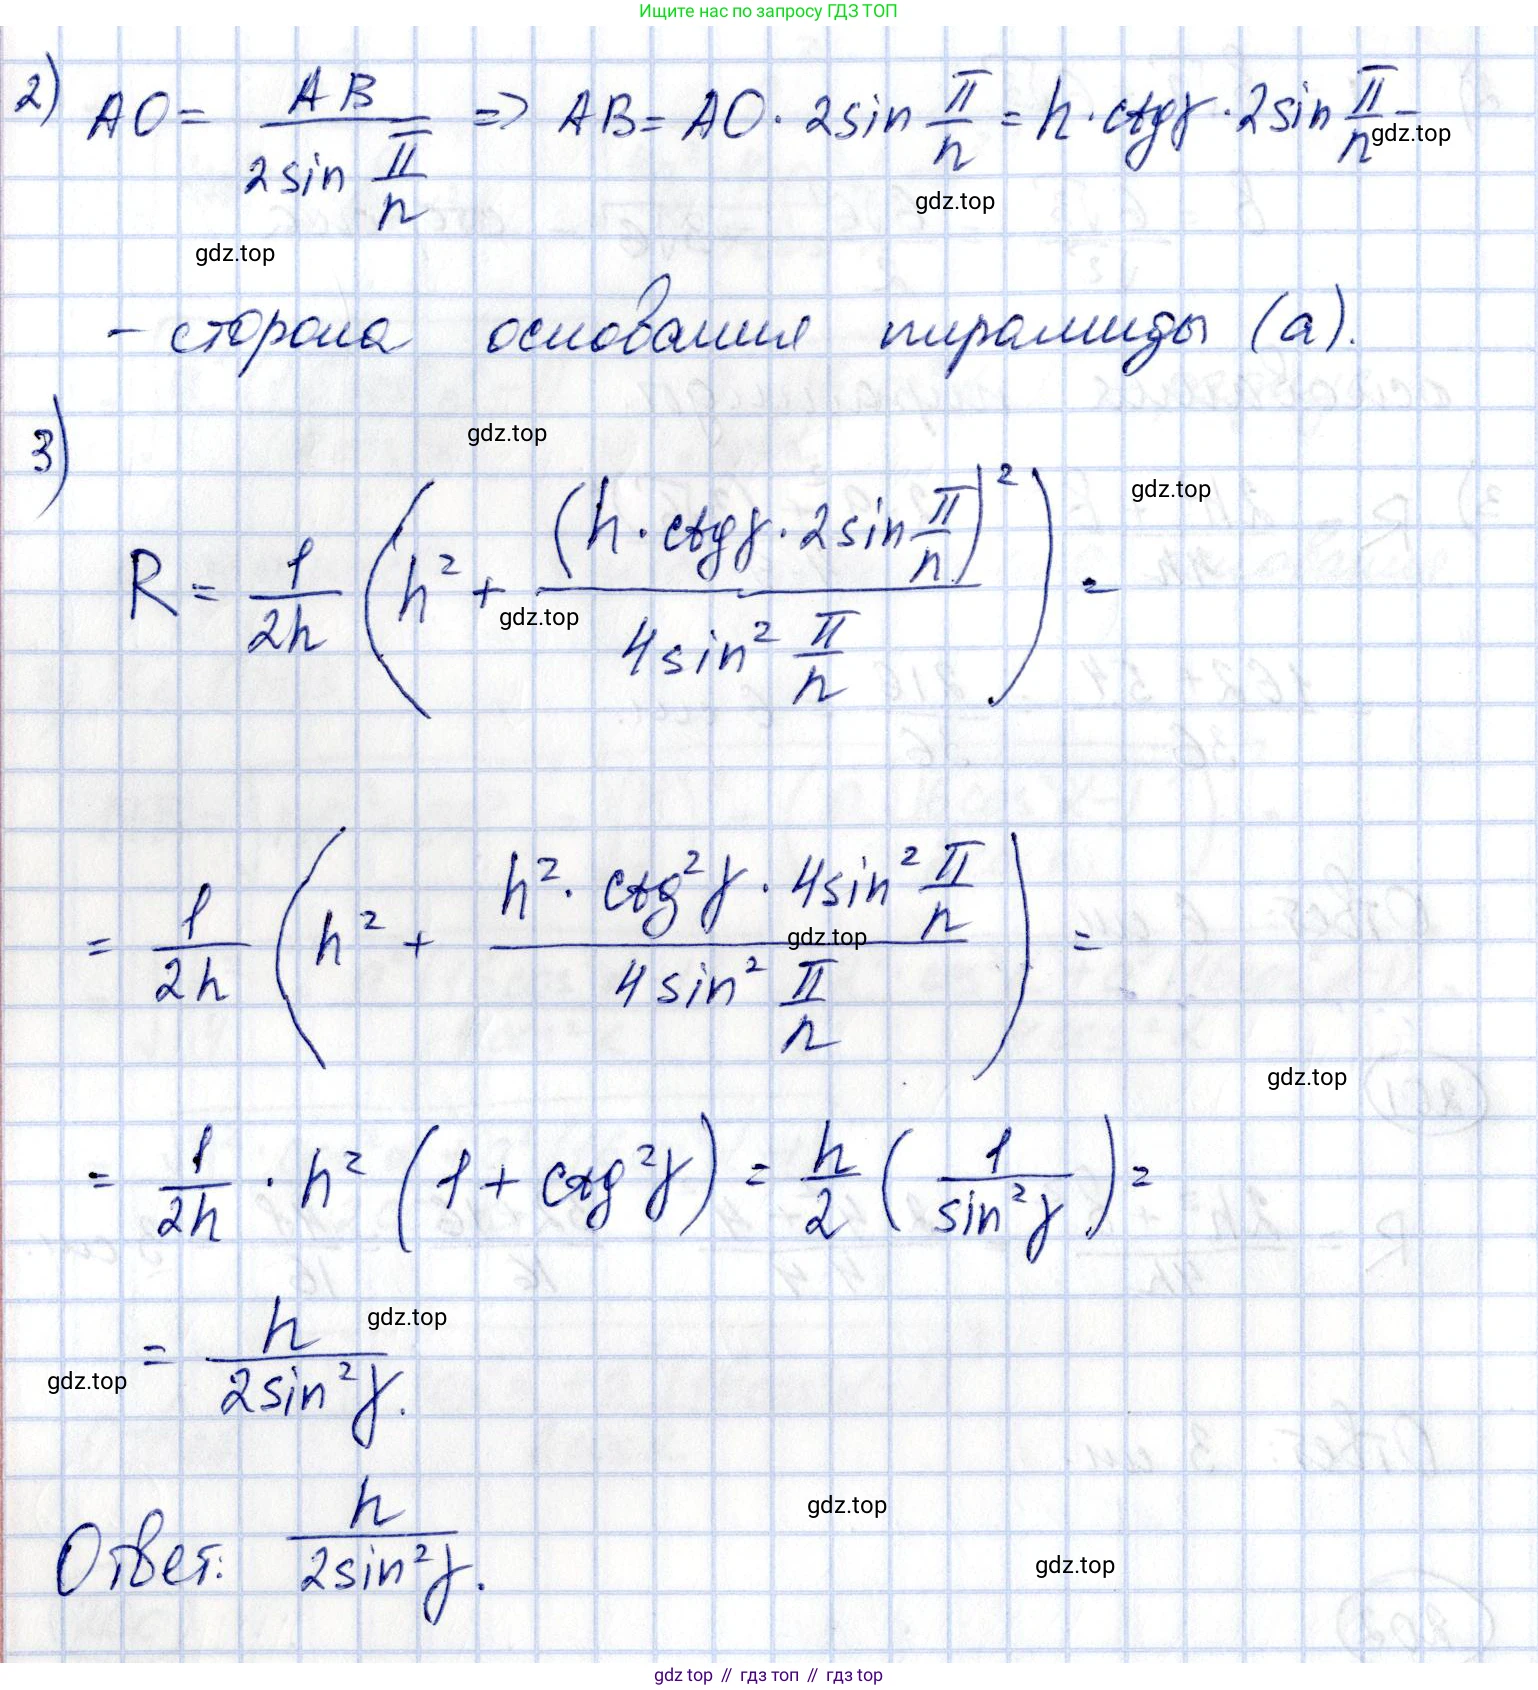 Ищите нас по запросу ГДЗ ТОП
2) AO = AB / (2 sin π/n) => AB = AO · 2 sin π/n = h · ctg γ · 2 sin π/n –
gdz.top
gdz.top
gdz.top
– сторона основания пирамиды (a).
3)
gdz.top
gdz.top
R = 1/(2h) (h² + (h · ctg γ · 2 sin π/n)² / (4 sin² π/n)) =
gdz.top
= 1/(2h) (h² + (h² · ctg² γ · 4 sin² π/n) / (4 sin² π/n)) =
gdz.top
gdz.top
= 1/(2h) · h² (1 + ctg² γ) = h/2 (1/(sin² γ)) =
= h/(2 sin² γ).
gdz.top
gdz.top
Ответ: h/(2 sin² γ).
gdz.top
gdz.top
gdz.top // гдз топ // гдз.top